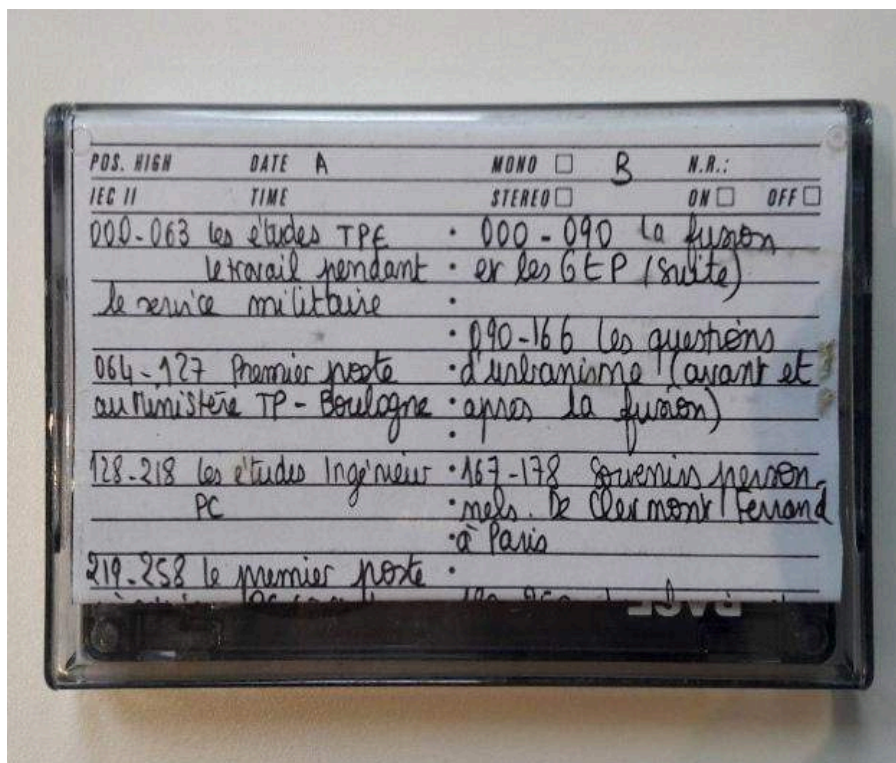 POS. HIGH DATE A MONO B N.R.:
IEC II TIME STEREO ON OFF
000-063 les études TPE
le travail pendant
le service militaire
064-127 Premier poste
au Ministère TP - Boulogne
128-218 les études Ingénieur
PC
219-258 le premier poste
000-090 la fusion
et les GEP (suite)
090-166 les questions
d'urbanisme (avant et
après la fusion)
167-178 Souvenirs person-
nels. De Clermont Ferrand
à Paris